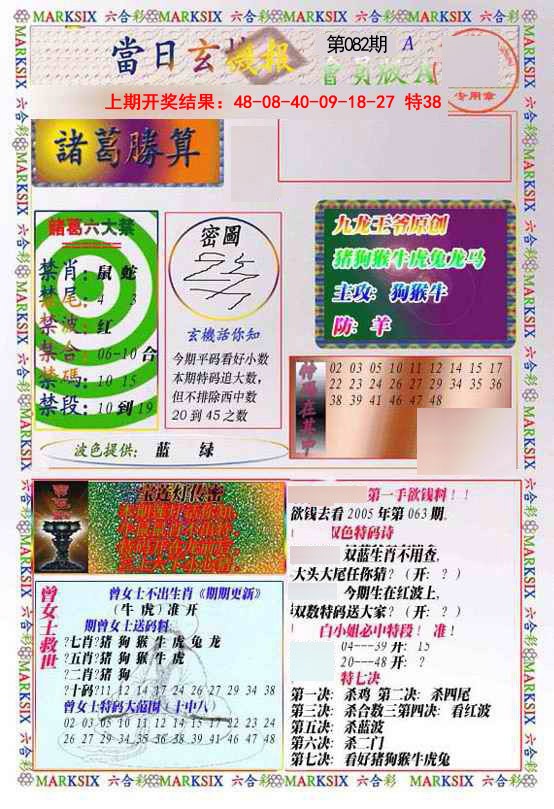 MARKSIX 六合彩 MARKSIX 六合彩 MARKSIX 六合彩 MARKSIX 六合彩 MARKSIX 六合彩
當日玄機報
第082期 A
會員版A
专用章
上期开奖结果：48-08-40-09-18-27 特38
諸葛勝算
諸葛六大禁
禁肖：鼠 蛇
禁尾：4 3
禁波：红
禁合：06-10 合
禁碼：10 15
禁段：10 到 19
密圖
玄機話你知
今期平码看好小数
本期特码追大数，
但不排除西中数
20 到 45 之数
九龙王爷原创
猪狗猴牛虎兔龙马
主攻：狗猴牛
防：羊
02 03 05 10 11 12 14 15 17
22 23 24 26 27 29 34 35 36
38 39 41 46 47 48
波色提供： 蓝 绿
宝莲灯传密
第一手欲钱料！！
欲钱去看 2005 年第 063 期，
双色特码诗
双蓝生肖不用查，
大头大尾任你猜？（开：？）
今期生在红波上，
双数特码送大家？（开：？）
白小姐必中特段！ 准！
04---39 开： 15
20---48 开：？
特七决
第一决：杀鸡 第二决：杀四尾
第三决：杀合数三第四决：看红波
第五决：杀蓝波
第六决：杀二门
第七决：看好猪狗猴牛虎兔
曾女士救世
曾女士不出生肖《期期更新》
（牛 虎）准 开
期曾女士送码料
?七肖?猪 狗 猴 牛 虎 兔 龙
?五肖?猪 狗 猴 牛 虎
?二肖?猪 狗
?十码?11 12 14 17 24 26 27 29 34 38
曾女士特码大范围（十中八）
02 03 05 10 11 12 14 15 17 22 23 24
26 27 29 34 35 36 38 39 41 46 47 48
MARKSIX 六合彩 MARKSIX 六合彩 MARKSIX 六合彩 MARKSIX 六合彩 MARKSIX 六合彩